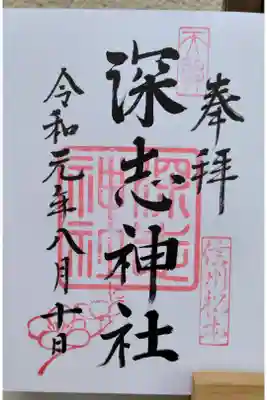 奉拝
深志神社
令和元年八月十日
深志神社
信州松本